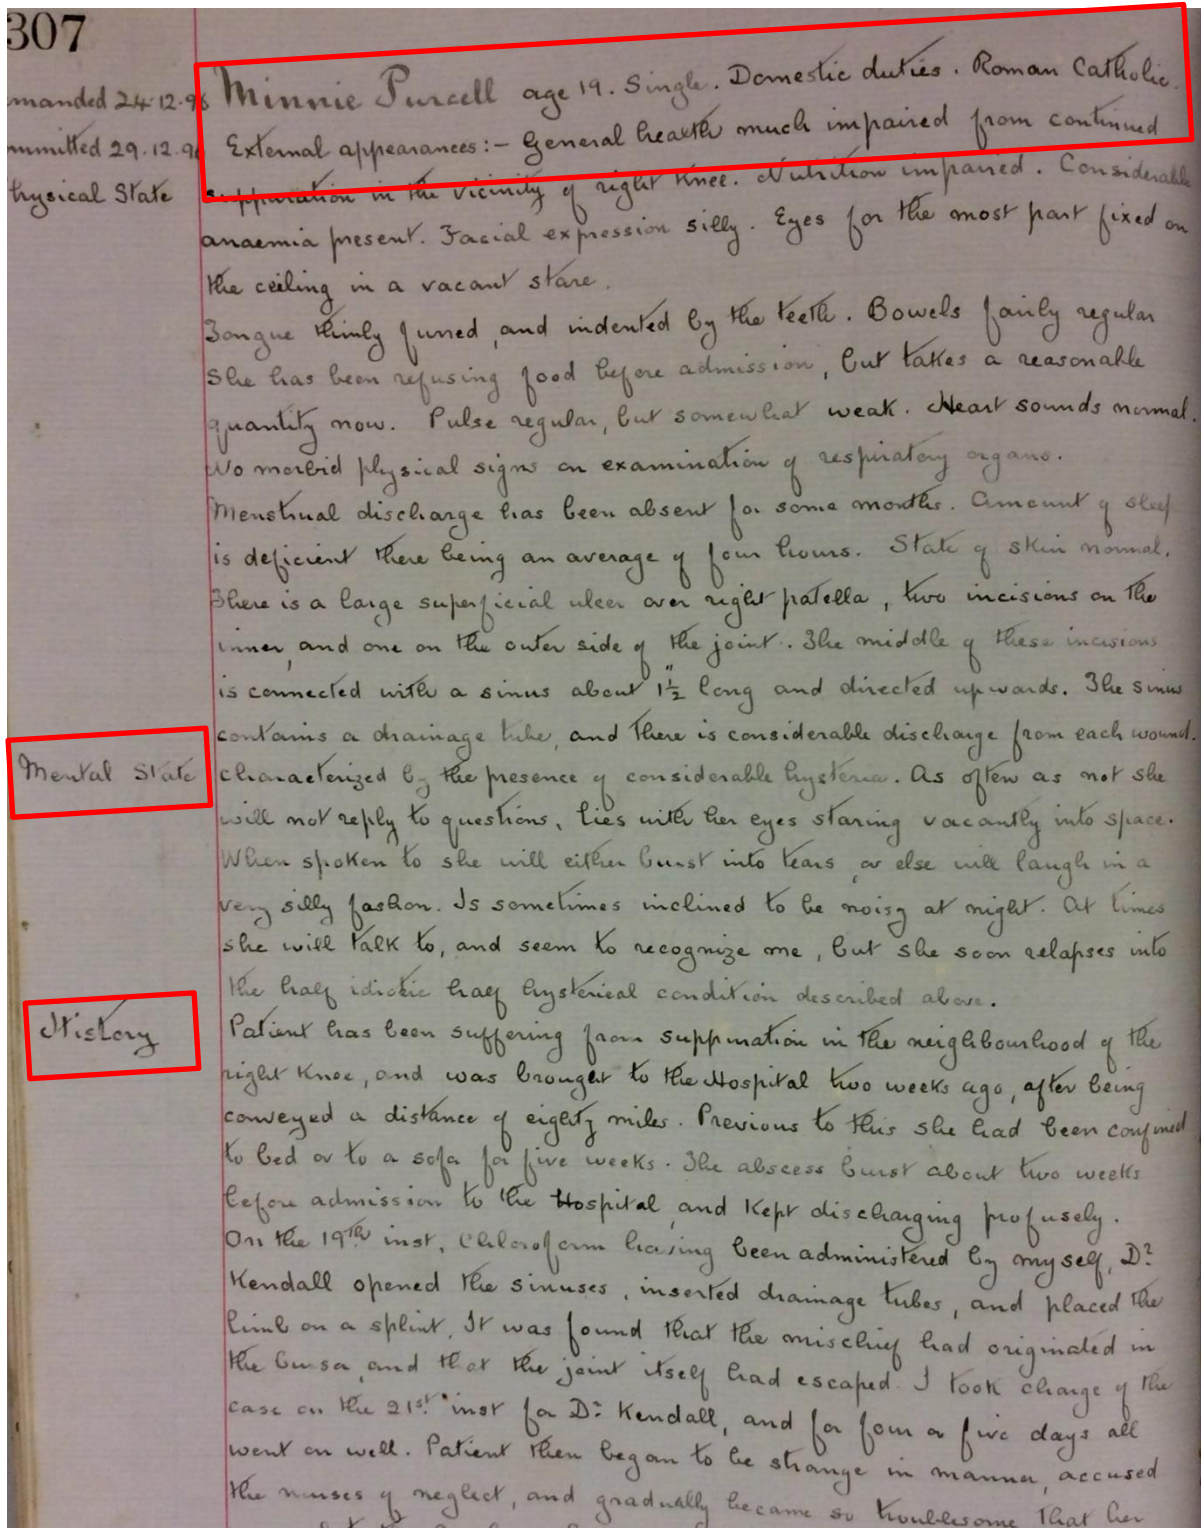 307
manded 24.12.96
mmitted 29.12.96
hysical State
Minnie Purcell age 19. Single. Domestic duties. Roman Catholic.
External appearances:- General health much impaired from continued
suppuration in the vicinity of right Knee. Nutrition impaired. Considerable
anaemia present. Facial expression silly. Eyes for the most part fixed on
the ceiling in a vacant stare.
Tongue thinly furred, and indented by the teeth. Bowels fairly regular
She has been refusing food before admission, but takes a reasonable
quantity now. Pulse regular, but somewhat weak. Heart sounds normal.
No morbid physical signs on examination of respiratory organs.
Menstrual discharge has been absent for some months. Amount of sleep
is deficient there being an average of four hours. State of skin normal.
There is a large superficial ulcer over right patella, two incisions on the
inner, and one on the outer side of the joint. The middle of these incisions
is connected with a sinus about 1½" long and directed upwards. The sinus
contains a drainage tube, and there is considerable discharge from each wound.
Mental State
characterized by the presence of considerable hysteria. As often as not she
will not reply to questions, lies with her eyes staring vacantly into space.
When spoken to she will either burst into tears, or else will laugh in a
very silly fashon. Is sometimes inclined to be noisy at night. At times
she will talk to, and seem to recognize me, but she soon relapses into
the half idiotic half hysterical condition described above.
History
Patient has been suffering from suppuration in the neighbourhood of the
right Knee, and was brought to the Hospital two weeks ago, after being
conveyed a distance of eighty miles. Previous to this she had been confined
to bed or to a sofa for five weeks. The abscess burst about two weeks
before admission to the Hospital, and kept discharging profusely.
On the 19th inst, Chloroform having been administered by myself, Dr
Kendall opened the sinuses, inserted drainage tubes, and placed the
limb on a splint. It was found that the mischief had originated in
the bursa, and that the joint itself had escaped. I took charge of the
case on the 21st inst for Dr Kendall, and for four or five days all
went on well. Patient then began to be strange in manner, accused
the nurses of neglect, and gradually became so troublesome that her